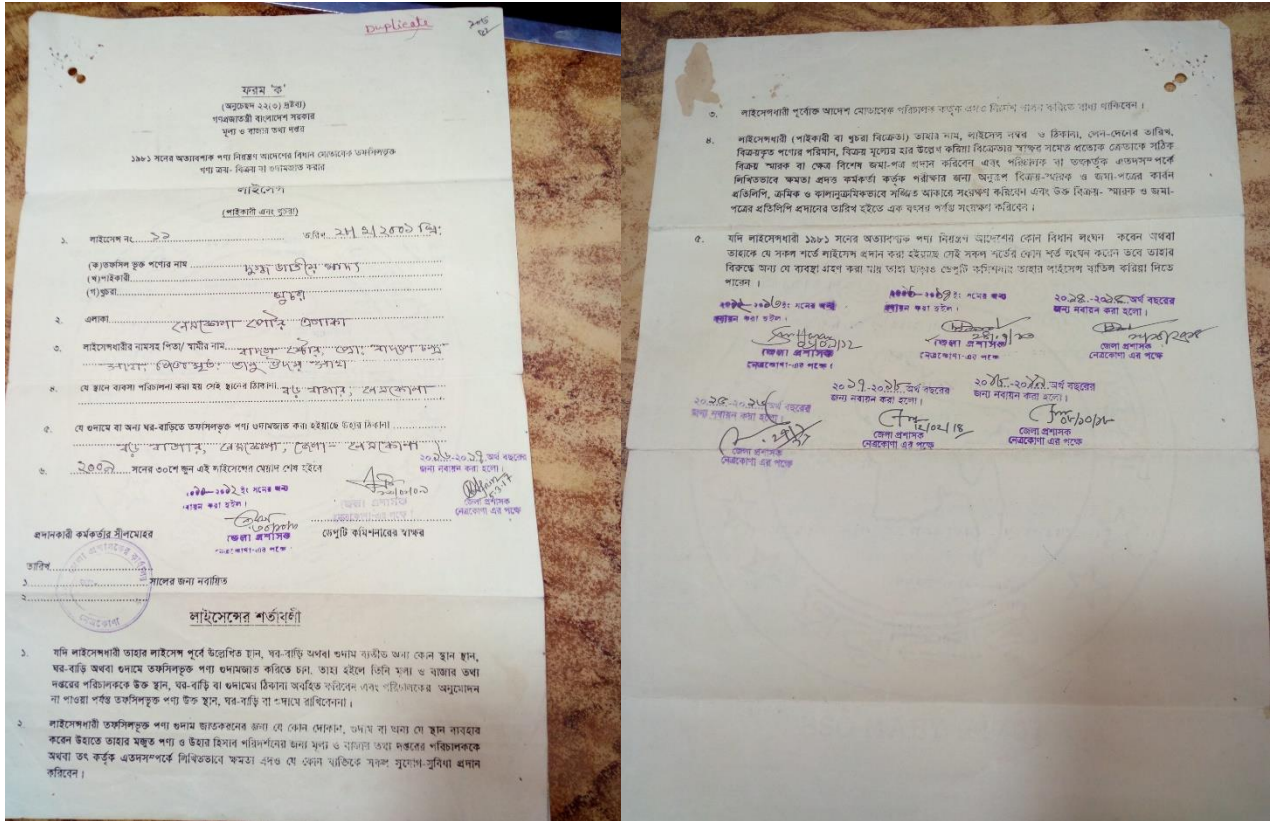 Duplicate
ফরম 'ক'
(অনুচ্ছেদ ২২(৩) দ্রষ্টব্য)
গণপ্রজাতন্ত্রী বাংলাদেশ সরকার
মূল্য ও বাজার তথ্য দপ্তর
১৯৮১ সনের অত্যাবশ্যক পণ্য নিয়ন্ত্রণ আদেশের বিধান মোতাবেক তফসিলভুক্ত
পণ্য ক্রয়- বিক্রয় বা গুদামজাত করার
লাইসেন্স
(পাইকারী এবং খুচরা)
১. লাইসেন্স নং ১১ তারিখ
(ক)তফসিল ভুক্ত পণ্যের নাম দুগ্ধ জাতীয় খাদ্য
(খ)পাইকারী
(গ)খুচরা খুচরা
২. এলাকা নেত্রকোণা পৌর এলাকা
৩. লাইসেন্সধারীর নামসহ পিতা/ স্বামীর নাম
৪. যে স্থানে ব্যবসা পরিচালনা করা হয় সেই স্থানের ঠিকানা বড় বাজার, নেত্রকোণা
৫. যে গুদামে বা অন্য ঘর-বাড়িতে তফসিলভুক্ত পণ্য গুদামজাত করা হইয়াছে উহার ঠিকানা
বড় বাজার, নেত্রকোণা, জেলা- নেত্রকোণা
২০১৬-২০১৭ অর্থ বছরের
জন্য নবায়ন করা হলো।
৬. সনের ৩০শে জুন এই লাইসেন্সের মেয়াদ শেষ হইবে
ইং সনের জন্য
নবায়ন করা হইল।
জেলা প্রশাসক
নেত্রকোণা এর পক্ষে
প্রদানকারী কর্মকর্তার সীলমোহর
জেলা প্রশাসক
নেত্রকোণা-এর পক্ষে
ডেপুটি কমিশনারের স্বাক্ষর
তারিখ
১ সালের জন্য নবায়িত
২
লাইসেন্সের শর্তাবলী
১. যদি লাইসেন্সধারী তাহার লাইসেন্স পূর্বে উল্লেখিত স্থান, ঘর-বাড়ি অথবা গুদাম ব্যতীত অন্য কোন স্থান স্থান,
ঘর-বাড়ি অথবা গুদামে তফসিলভুক্ত পণ্য গুদামজাত করিতে চান, তাহা হইলে তিনি মূল্য ও বাজার তথ্য
দপ্তরের পরিচালককে উক্ত স্থান, ঘর-বাড়ি বা গুদামের ঠিকানা অবহিত করিবেন এবং পরিচালকের অনুমোদন
না পাওয়া পর্যন্ত তফসিলভুক্ত পণ্য উক্ত স্থান, ঘর-বাড়ি বা গুদামে রাখিবেননা।
২. লাইসেন্সধারী তফসিলভুক্ত পণ্য গুদাম জাতকরনের জন্য যে কোন দোকান, গুদাম বা অন্য যে স্থান ব্যবহার
করেন উহাতে তাহার মজুত পণ্য ও উহার হিসাব পরিদর্শনের জন্য মূল্য ও বাজার তথ্য দপ্তরের পরিচালককে
অথবা তৎ কর্তৃক এতদসম্পর্কে লিখিতভাবে ক্ষমতা প্রদত্ত যে কোন ব্যক্তিকে সকল সুযোগ-সুবিধা প্রদান
করিবেন।
৩. লাইসেন্সধারী পূর্বোক্ত আদেশ মোতাবেক পরিচালক কর্তৃক প্রদত্ত নির্দেশ পালন করিতে বাধ্য থাকিবেন।
৪. লাইসেন্সধারী (পাইকারী বা খুচরা বিক্রেতা) তাহার নাম, লাইসেন্স নম্বর ও ঠিকানা, লেন-দেনের তারিখ,
বিক্রয়কৃত পণ্যের পরিমান, বিক্রয় মূল্যের হার উল্লেখ করিয়া বিক্রেতার স্বাক্ষর সমেত প্রত্যেক ক্রেতাকে সঠিক
বিক্রয় স্মারক বা ক্ষেত্র বিশেষ জমা-পত্র প্রদান করিবেন এবং পরিচালক বা তৎকর্তৃক এতদসম্পর্কে
লিখিতভাবে ক্ষমতা প্রদত্ত কর্মকর্তা কর্তৃক পরীক্ষার জন্য অনুরূপ বিক্রয়-স্মারক ও জমা-পত্রের কার্বন
প্রতিলিপি, ক্রমিক ও কালানুক্রমিকভাবে সজ্জিত আকারে সংরক্ষণ করিবেন এবং উক্ত বিক্রয়- স্মারক ও জমা-
পত্রের প্রতিলিপি প্রদানের তারিখ হইতে এক বৎসর পর্যন্ত সংরক্ষণ করিবেন।
৫. যদি লাইসেন্সধারী ১৯৮১ সনের অত্যাবশ্যক পণ্য নিয়ন্ত্রণ আদেশের কোন বিধান লংঘন করেন অথবা
তাহাকে যে সকল শর্তে লাইসেন্স প্রদান করা হইয়াছে সেই সকল শর্তের কোন শর্ত লংঘন করেন তবে তাহার
বিরুদ্ধে অন্য যে ব্যবস্থা গ্রহণ করা যায় তাহা ছাড়াও ডেপুটি কমিশনার তাহার লাইসেন্স বাতিল করিয়া দিতে
পারেন।
ইং সনের জন্য
নবায়ন করা হইল।
জেলা প্রশাসক
নেত্রকোণা-এর পক্ষে।
ইং সনের জন্য
নবায়ন করা হইল।
জেলা প্রশাসক
নেত্রকোণা-এর পক্ষে।
অর্থ বছরের
জন্য নবায়ন করা হলো।
জেলা প্রশাসক
নেত্রকোণা এর পক্ষে
অর্থ বছরের
জন্য নবায়ন করা হলো।
জেলা প্রশাসক
নেত্রকোণা এর পক্ষে
২০১৭-২০১৮ অর্থ বছরের
জন্য নবায়ন করা হলো।
12/02/18
জেলা প্রশাসক
নেত্রকোণা এর পক্ষে
অর্থ বছরের
জন্য নবায়ন করা হলো।
জেলা প্রশাসক
নেত্রকোণা এর পক্ষে